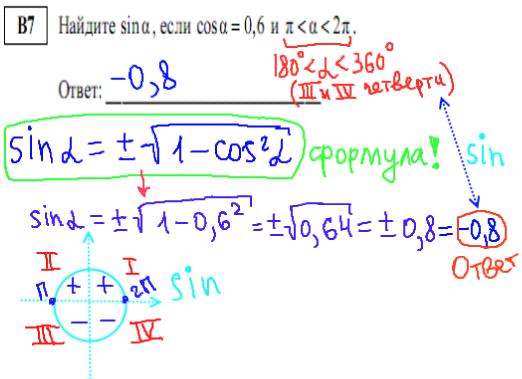 B7 Найдите sin α, если cos α = 0,6 и π < α < 2π.
180° < α < 360°
(III и IV четверти)
Ответ: -0,8
sin α = ±√1 - cos²α формула! sin
sin α = ±√1 - 0,6² = ±√0,64 = ± 0,8 = -0,8
ответ
II I
π + + 2π sin
III - - IV